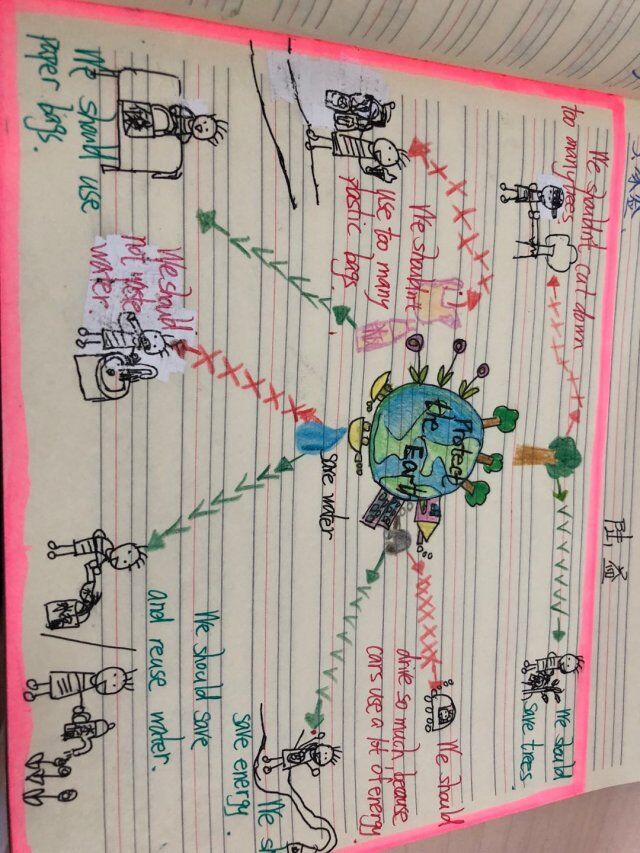 陆盈
We shouldn't cut down
too many trees
We should
save trees.
Protect
the Earth
We shouldn't
use too many
plastic bags.
We should
drive so much, because
cars use a lot of energy.
save water
We should
not waste
water.
We should use
paper bags.
We should save
and reuse water.
We sh
save energy.